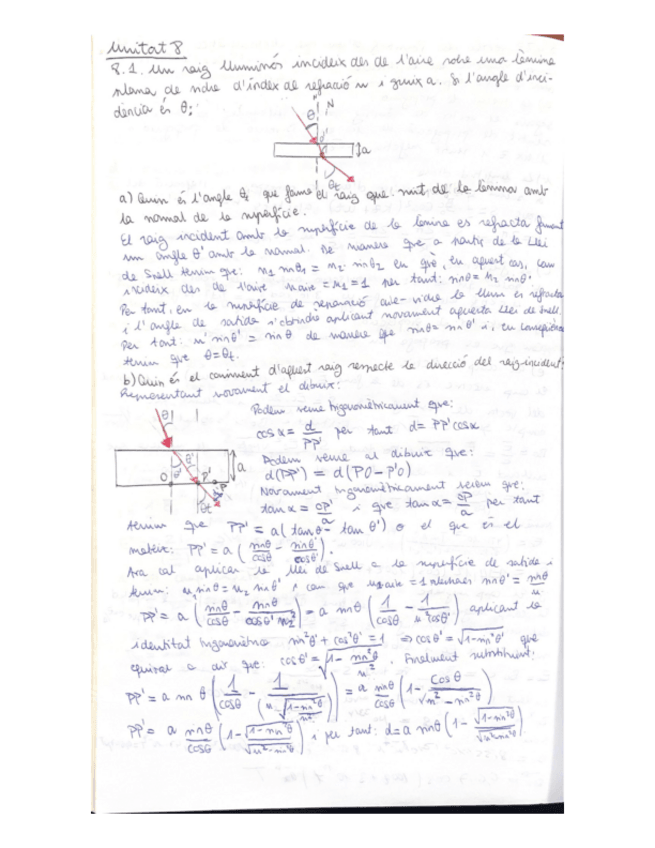 Unitat 8
8.1. Un raig lluminós incideix des de l'aire sobre una làmina
plana de vidre d'índex de refracció n i gruix a. Si l'angle d'inci-
dència és θi:
N
θ
θ'
a
θt
a) Quin és l'angle θt que forma el raig que surt de la làmina amb
la normal de la superfície.
El raig incident amb la superfície de la làmina es refracta formant
un angle θ' amb la normal. De manera que a partir de la Llei
de Snell tenim que: n₁ sinθ₁ = n₂ sinθ₂ en què, en aquest cas, com
incideix des de l'aire naire = n₁ = 1 per tant: sinθ = n₂ sinθ'.
Per tant, en la superfície de separació aire-vidre la llum es refracta
i l'angle de sortida s'obtindrà aplicant novament aquesta Llei de Snell.
Per tant: n' sinθ' = sinθ de manera que sinθ = sinθ' i, en conseqüència
tenim que θ=θt.
b) Quin és el creixement d'aquest raig respecte la direcció del raig incident:
Representant novament el dibuix:
Podem veure trigonomètricament que:
cos α = d/PP' per tant d = PP' cos α
Podem veure al dibuix que:
d(PP') = d(PO - P'O)
Novament trigonomètricament veiem que:
tan α = OP'/a i que tan α = OP/a per tant
θ
θ'
θ'
a
O
P'
P
θt
tenim que PP' = a (tan θ - tan θ') o el que és el
mateix: PP' = a (sinθ/cosθ - sinθ'/cosθ').
Ara cal aplicar la llei de Snell a la superfície de sortida i
tenim: n₁ sinθ = n₂ sinθ' i com que naire = 1 sinθ' = sinθ/n
PP' = a (sinθ/cosθ - sinθ/cosθ' n₂) = a sinθ (1/cosθ - 1/n cosθ') aplicant la
identitat trigonomètrica sin²θ' + cos²θ' = 1 ⇒ cosθ' = √1-sin²θ' que
equival a dir que: cosθ' = √1 - sin²θ/n². Finalment substituint:
PP' = a sin θ (1/cosθ - 1/(n √1-sin²θ/n²)) = a sinθ/cosθ (1 - cosθ/√n²-sin²θ)
PP' = a sinθ/cosθ (1 - √1-sin²θ/√n²-sin²θ) i per tant: d = a sinθ (1 - √1-sin²θ/√n²-sin²θ)